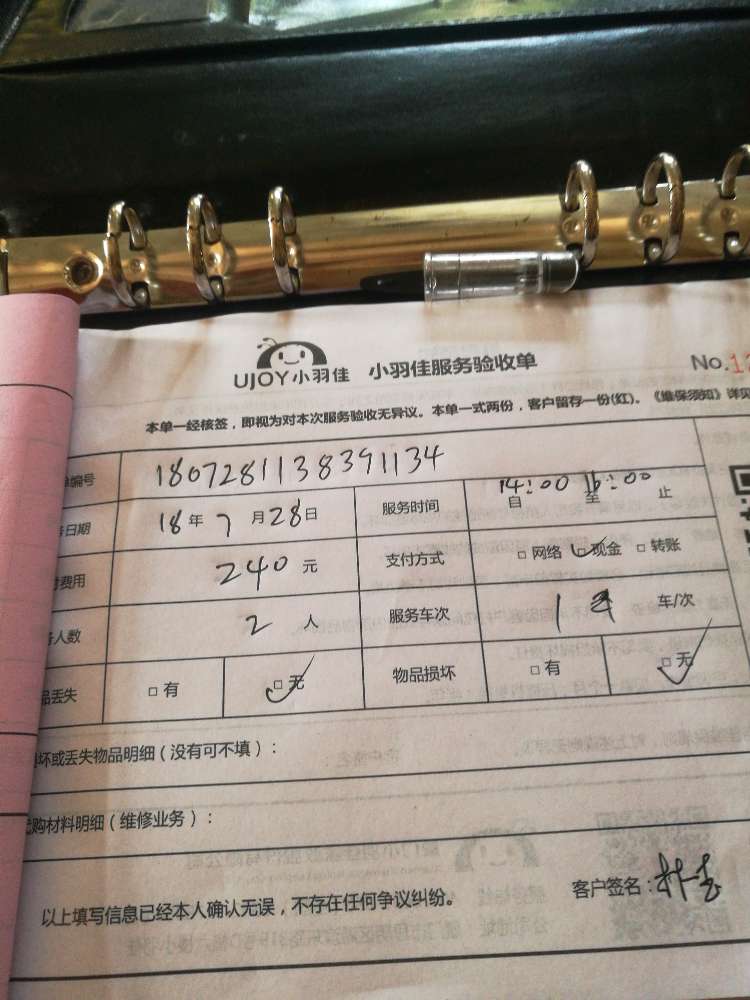 UJOY小羽佳 小羽佳服务验收单 No.1
本单一经核签，即视为对本次服务验收无异议。本单一式两份，客户留存一份(红)。《维保须知》详见
编号 1807281138391134
日期 18年7月28日 服务时间 14:00 16:00 自 至 止
费用 240元 支付方式 □网络 □现金 □转账
人数 2人 服务车次 1 车/次
品丢失 □有 □无 物品损坏 □有 □无
坏或丢失物品明细（没有可不填）：
购材料明细（维修业务）：
以上填写信息已经本人确认无误，不存在任何争议纠纷。 客户签名：